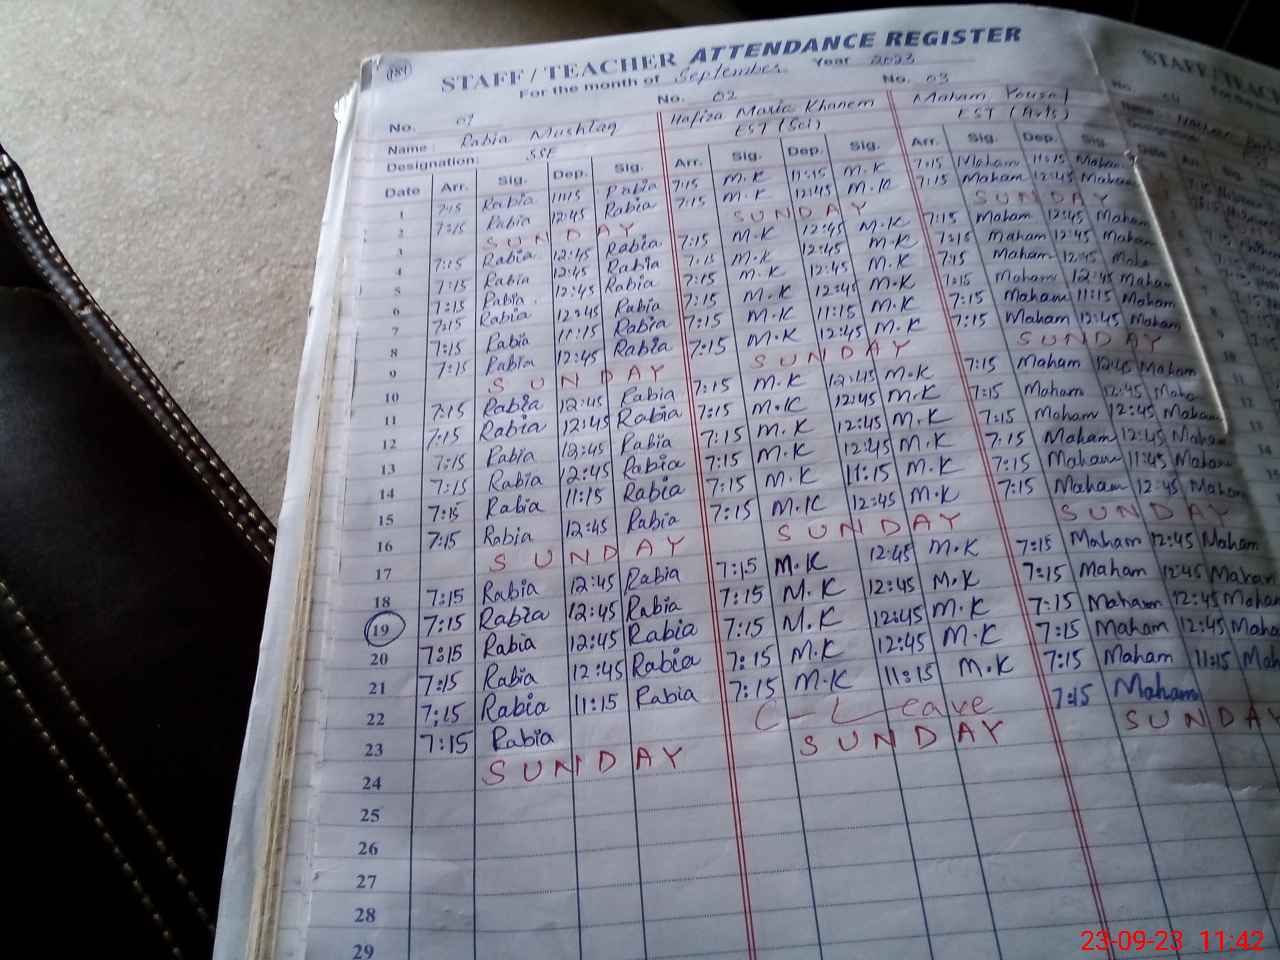 184
STAFF / TEACHER ATTENDANCE REGISTER
For the month of September Year 2023
No. 01 No. 02 No. 03
Name : Rabia Mushtaq Hafiza Maria Khanem Maham Yousaf
Designation: SSE EST (Sci) EST (Arts)
Date Arr. Sig. Dep. Sig. Arr. Sig. Dep. Sig. Arr. Sig. Dep. Sig.
1 7:15 Rabia 11:15 Rabia 7:15 M.K 11:15 M.K 7:15 Maham 11:15 Maham
2 7:15 Rabia 12:45 Rabia 7:15 M.K 12:45 M.K 7:15 Maham 12:45 Maham
3 SUNDAY SUNDAY SUNDAY
4 7:15 Rabia 12:45 Rabia 7:15 M.K 12:45 M.K 7:15 Maham 12:45 Maham
5 7:15 Rabia 12:45 Rabia 7:15 M.K 12:45 M.K 7:15 Maham 12:45 Maham
6 7:15 Rabia 12:45 Rabia 7:15 M.K 12:45 M.K 7:15 Maham 12:45
7 7:15 Rabia 12:45 Rabia 7:15 M.K 12:45 M.K 7:15 Maham 12:45 Maham
8 7:15 Rabia 11:15 Rabia 7:15 M.K 11:15 M.K 7:15 Maham 11:15 Maham
9 7:15 Rabia 12:45 Rabia 7:15 M.K 12:45 M.K 7:15 Maham 12:45 Maham
10 SUNDAY SUNDAY SUNDAY
11 7:15 Rabia 12:45 Rabia 7:15 M.K 12:45 M.K 7:15 Maham 12:45 Maham
12 7:15 Rabia 12:45 Rabia 7:15 M.K 12:45 M.K 7:15 Maham 12:45
13 7:15 Rabia 12:45 Rabia 7:15 M.K 12:45 M.K 7:15 Maham 12:45 Maham
14 7:15 Rabia 12:45 Rabia 7:15 M.K 12:45 M.K 7:15 Maham 12:45 Maham
15 7:15 Rabia 11:15 Rabia 7:15 M.K 11:15 M.K 7:15 Maham 11:45 Maham
16 7:15 Rabia 12:45 Rabia 7:15 M.K 12:45 M.K 7:15 Maham 12:45 Maham
17 SUNDAY SUNDAY SUNDAY
18 7:15 Rabia 12:45 Rabia 7:15 M.K 12:45 M.K 7:15 Maham 12:45 Maham
19 7:15 Rabia 12:45 Rabia 7:15 M.K 12:45 M.K 7:15 Maham 12:45 Maham
20 7:15 Rabia 12:45 Rabia 7:15 M.K 12:45 M.K 7:15 Maham 12:45 Maham
21 7:15 Rabia 12:45 Rabia 7:15 M.K 12:45 M.K 7:15 Maham 12:45
22 7:15 Rabia 11:15 Rabia 7:15 M.K 11:15 M.K 7:15 Maham 11:15
23 7:15 Rabia C-Leave 7:15 Maham
24 SUNDAY SUNDAY SUNDAY
25
26
27
28
29
23-09-23 11:42